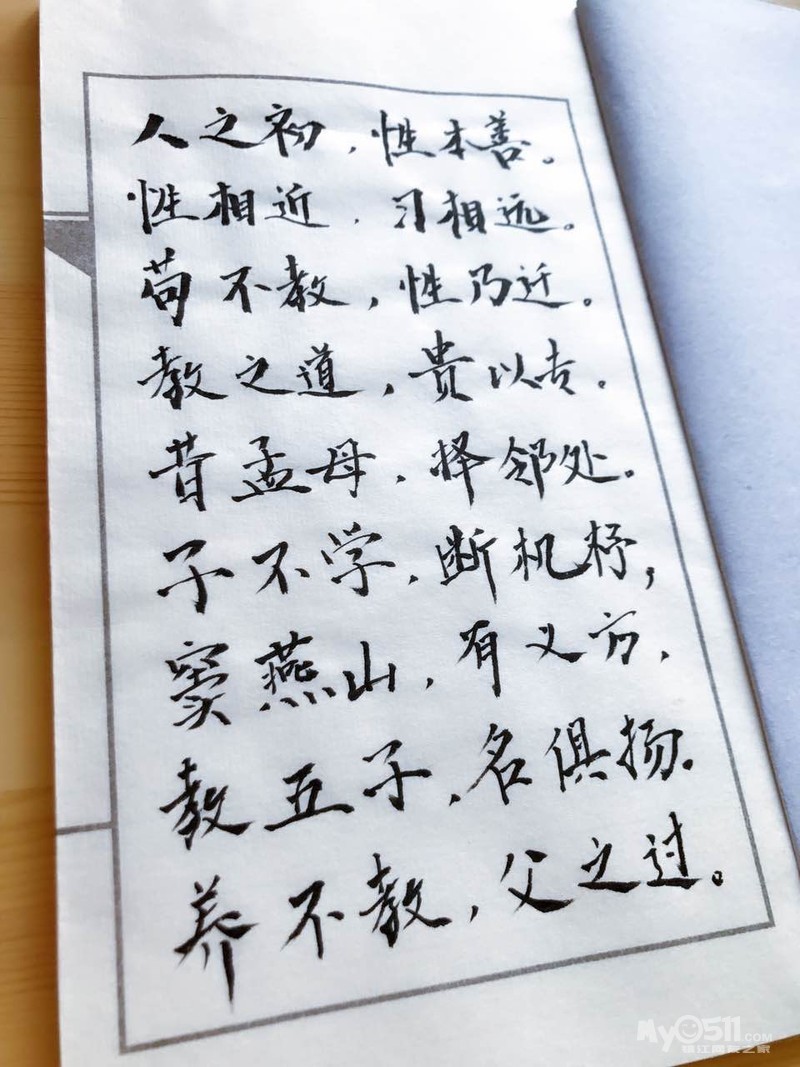 人之初，性本善。
性相近，习相远。
苟不教，性乃迁。
教之道，贵以专。
昔孟母，择邻处。
子不学，断机杼，
窦燕山，有义方，
教五子，名俱扬。
养不教，父之过。
My0511.COM
镇江网友之家